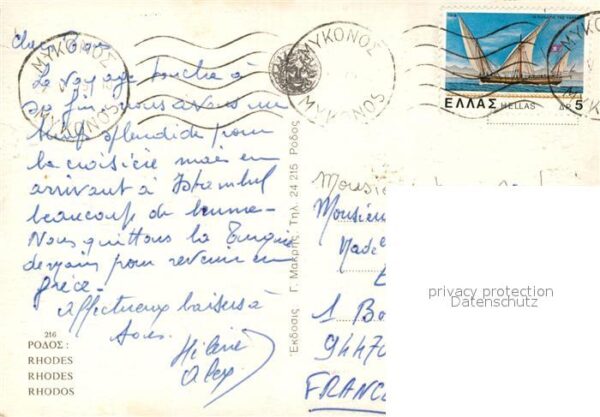 chers
Le voyage touche à
sa fin, nous avons un
temps splendide pour
la croisière mais en
arrivant à Istambul
beaucoup de brume -
Nous quittons la Turquie
demain pour revenir en
grèce.
Affectueux baisers à
tous.
Hélène
Alex
216
ΡΟΔΟΣ :
RHODES
RHODES
RHODOS
Ἔκδοσις Γ. Μακρῆς, Τηλ. 24 215 Ρόδος
ΜΥΚΟΝΟΣ
MYKONOS
ΜΥΚΟΝΟΣ
MYKONOS
ΕΛΛΑΣ HELLAS ΔΡ 5
Monsieur
Monsieur
Made
1 Ba
94470
FRANC
privacy protection
Datenschutz